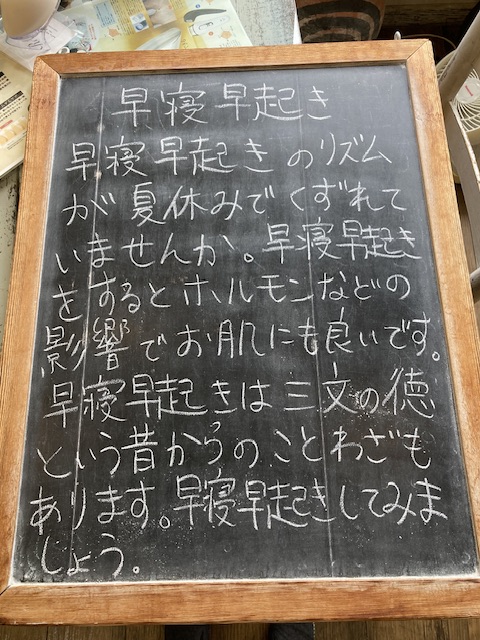 早寝早起き
早寝早起きのリズム
が夏休みでくずれて
いませんか。早寝早起き
をするとホルモンなどの
影響でお肌にも良いです。
早寝早起きは三文の徳
という昔からのことわざも
あります。早寝早起きしてみま
しょう。